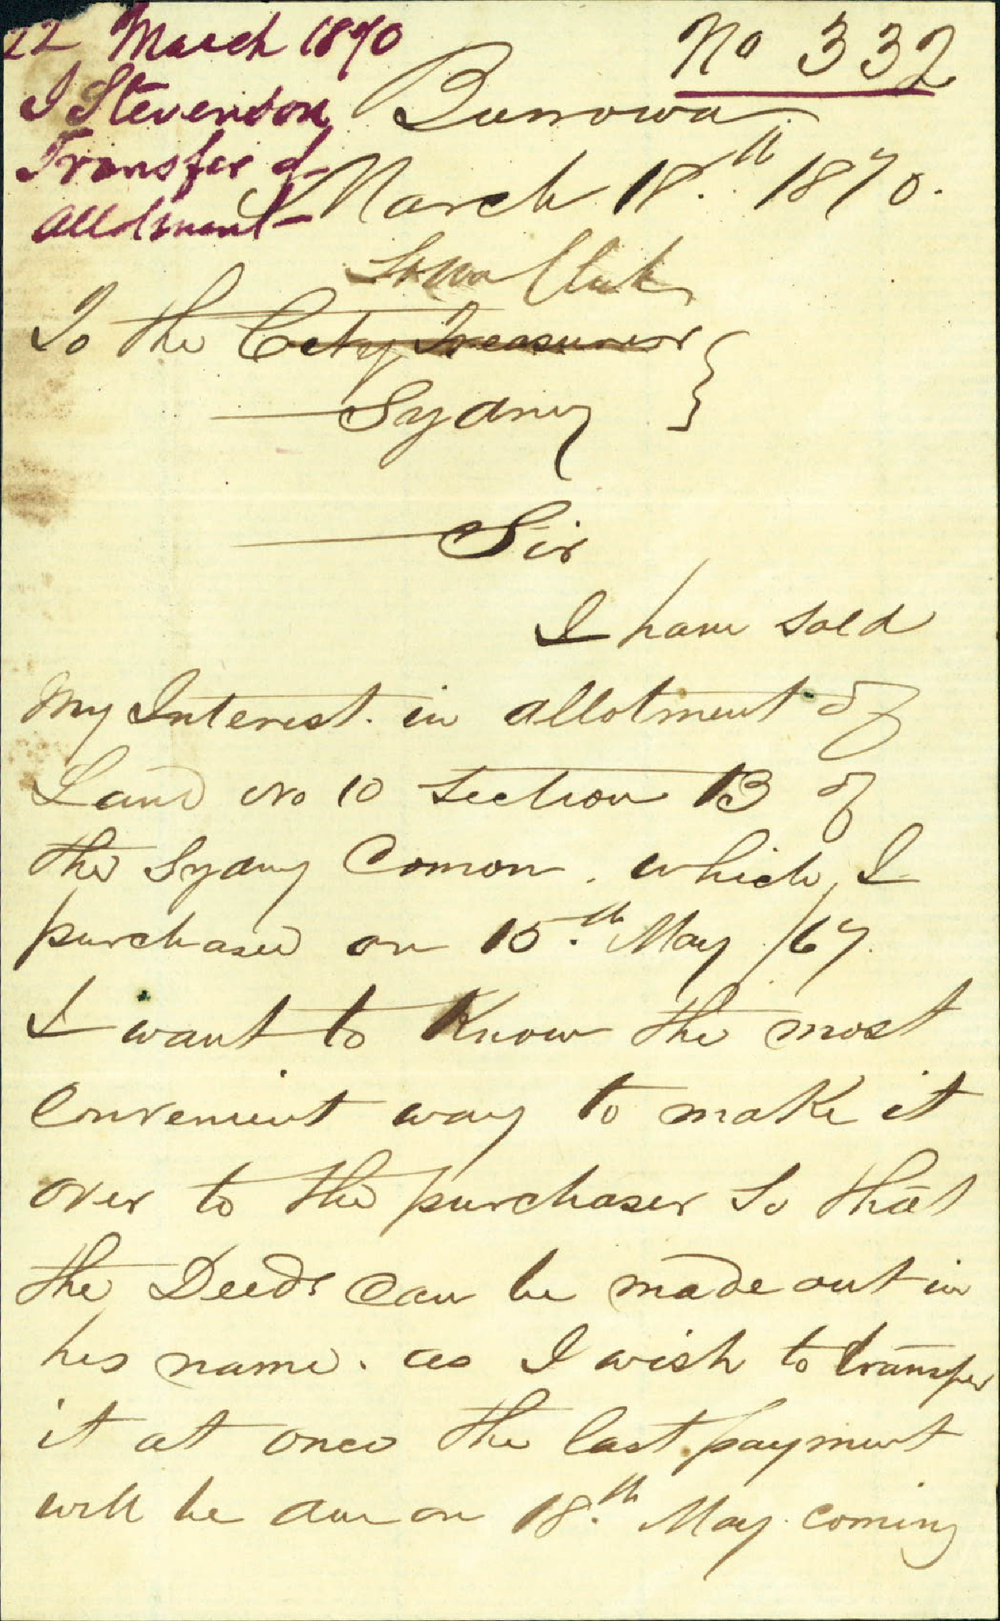 22 March 1870
J Stevenson
Transfer of
Allotment
No 332
Burrowa
March 18.th 1870.
Town Clerk
To the City Treasurer
Sydney
Sir
I have sold
My Interest in allotment of
Land No 10 Section 13 of
the Sydny Comon. which I
purchased on 15.th May /67.
I want to Know the most
Convenient way to make it
over to the purchaser So that
the Deeds Can be made out in
his name. as I wish to transfer
it at once the last payment
will be due on 18.th May. coming